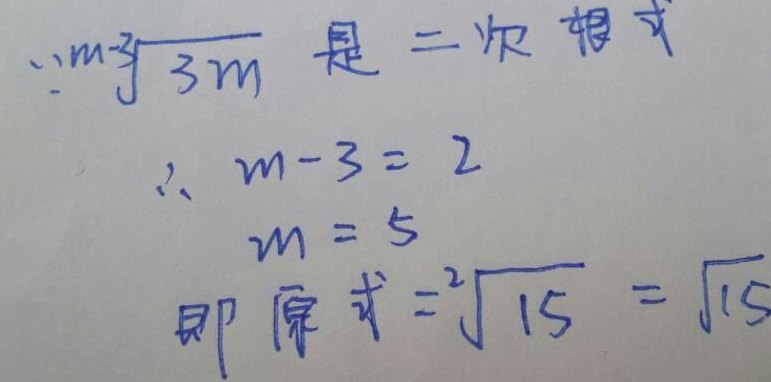 ∵ ᵐ⁻³√3m 是二次根式
∴ m-3=2
m=5
即原式=²√15=√15